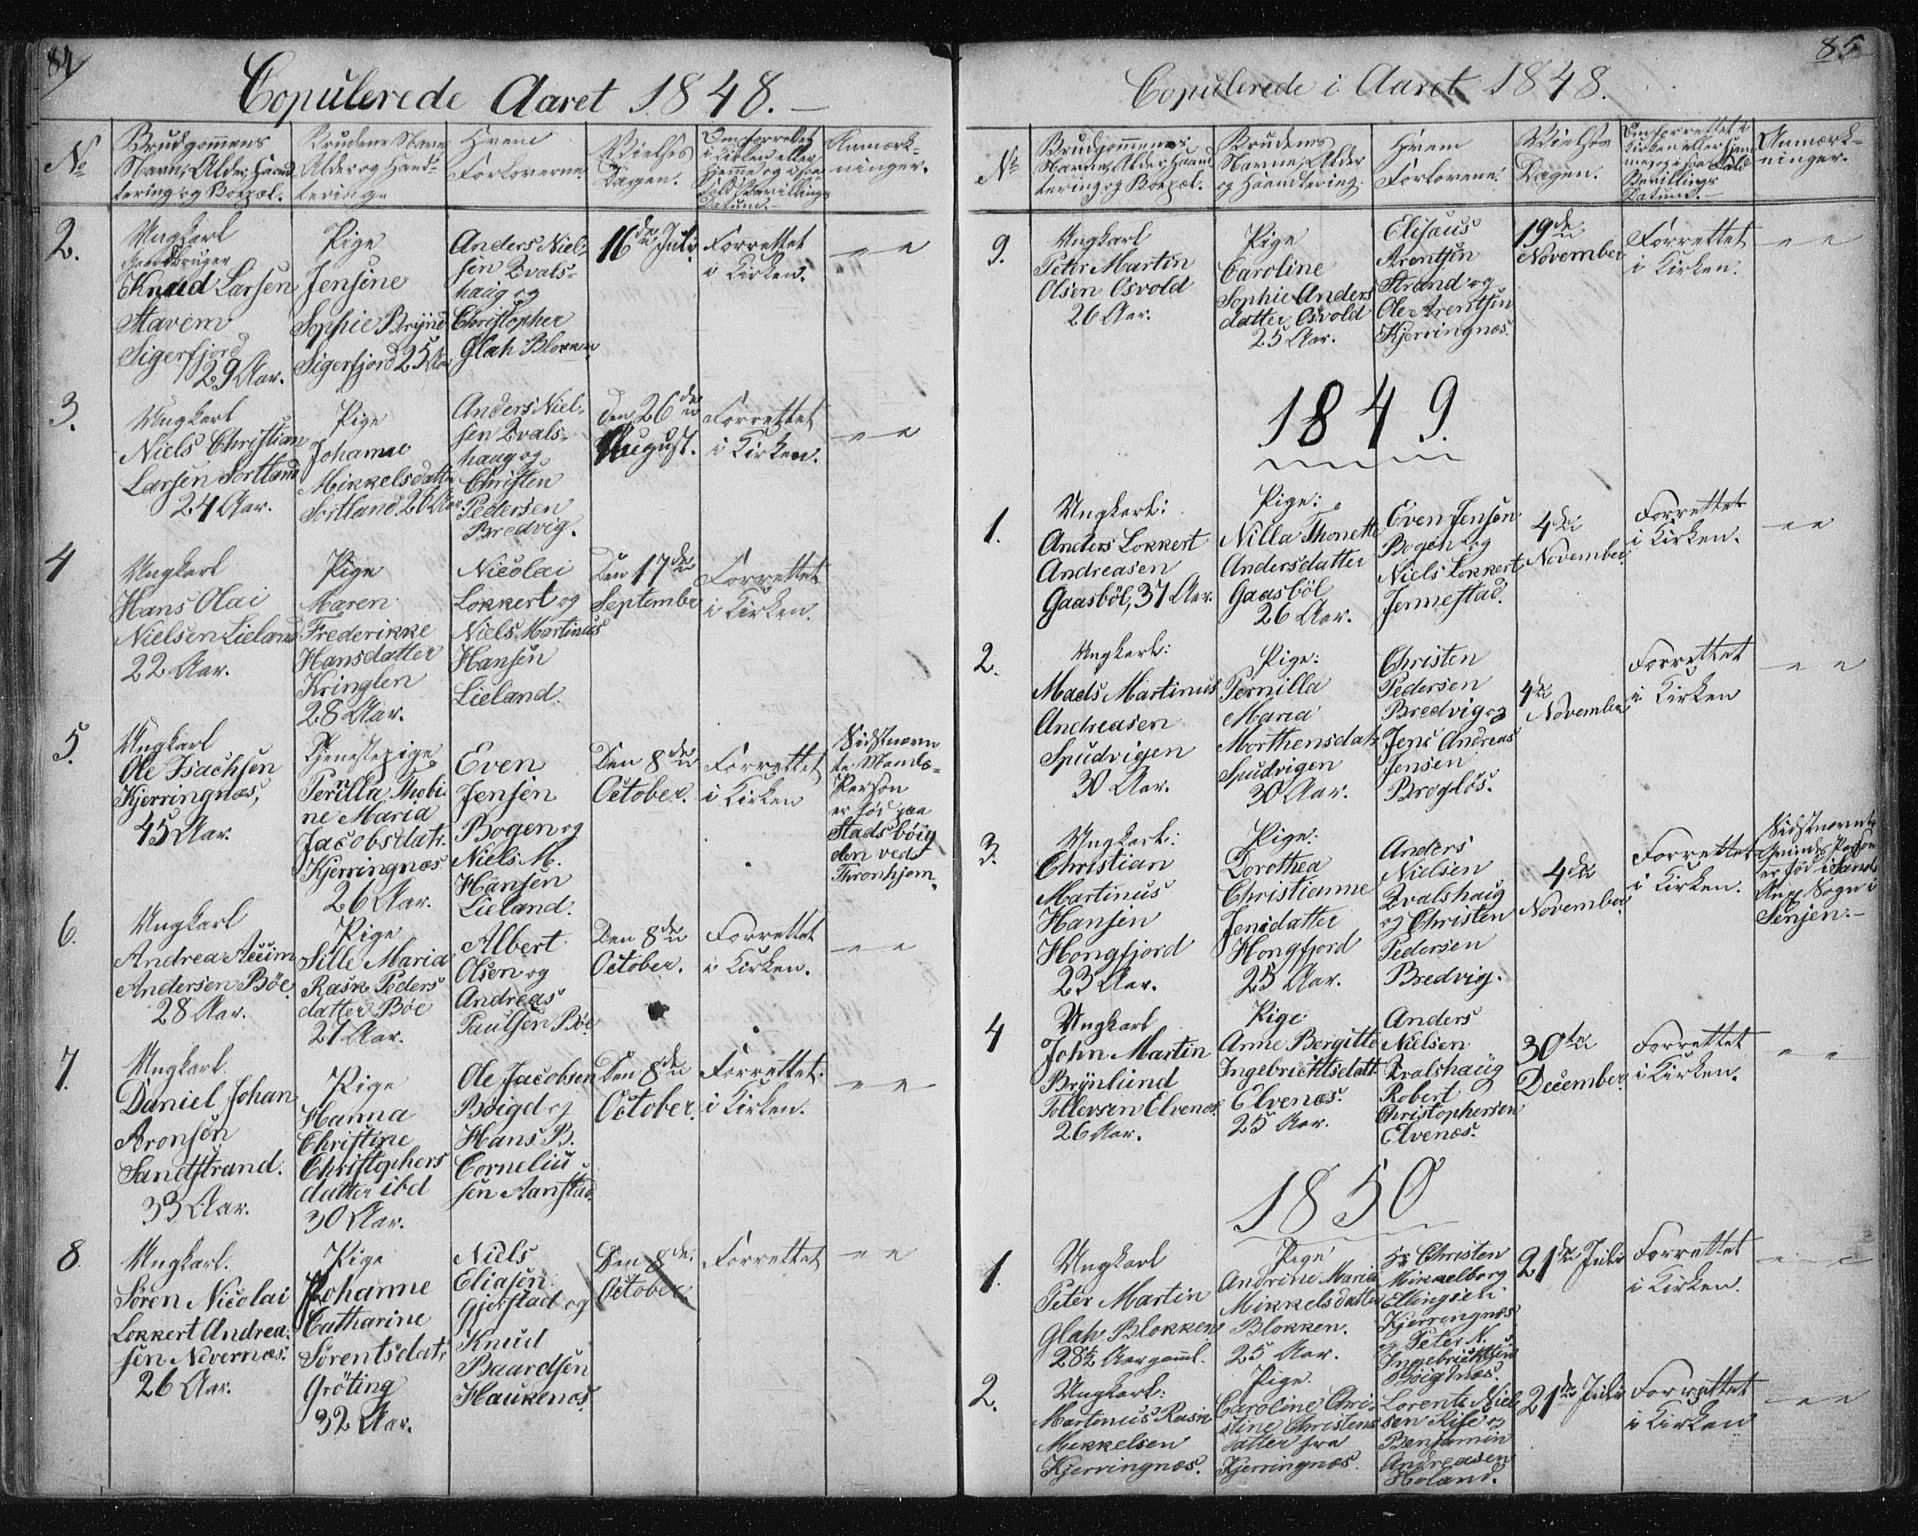 84
Copulerede Aaret 1848.
No
Brudgommens
Navn, Alder, Haand
tering og Bopæl.
Brudens Navn
Alder og Hand-
teringe
Hvem
Forloverne
Vielses
Dagen.
Om forrettet
i Kirken eller
Hjemme og i saa
Fald Bevillings
Datum.
Anmærk-
ninger.
2.
Ungkarl
Gaardbruger
Knud Larsen
Stavem
Sigerfjord
29 Aar.
Pige
Jensine
Sophie Brynd
Sigerfjord 25 Aar
Anders Niel-
sen Kvals-
haug og
Christopher
Glah Blokken
16de Juli.
Forrettet
i Kirken.
3.
Ungkarl
Niels Christian
Larsen Sortland
24 Aar.
Pige
Johanne
Mikkelsdatter
Sortland 26 Aar
Anders Niel-
sen Kvals-
haug og
Christen
Pedersen
Bredvig.
Den 26de
August.
Forrettet
i Kirken.
4
Ungkarl
Hans Olai
Nielsen Lieland
22 Aar.
Pige
Maren
Frederikke
Hansdatter
Kringlen
28 Aar.
Nicolai
Lokkert og
Niels Martinus
Hansen
Lieland.
Den 17de
September
Forrettet
i Kirken.
5.
Ungkarl
Ole Isachsen
Kjerringnæs,
45 Aar.
Tjenestepige
Perilla Thobi
ne Maria
Jacobsdatr.
Kjerringnæs
26 Aar.
Even
Jensen
Bogen og
Niels M.
Hansen
Lieland.
Den 8de
October.
Forrettet
i Kirken
Sidstnævn
te Mands-
Person
er fød paa
Stadsbøig
den ved
Thronhjem.
6.
Ungkarl
Andersen Bøe.
28 Aar.
Pige
Sille Maria
Rask Peders
datter Bøe
21 Aar.
Albert
Olsen og
Andreas
Paulsen Bøe
Den 8de
October.
Forrettet
i Kirken.
7.
Ungkarl.
Daniel Johan
Aronsen
Sandstrand.
33 Aar.
Pige
Hanna
Christine
Christophers
datter ibd
30 Aar.
Ole Jacobsen
Bøigd og
Hans B.
Cornelius
sen Aanstad.
Den 8de
October.
Forrettet
i Kirken.
8
Ungkarl.
Søren Nicolai
Lokkert Andrea-
sen Nevernæs.
26 Aar.
Pige
Johanne
Catharine
Sørentsdatr
Grøting
32 Aar.
Niels
Eliasen
Gjerstad og
Knud
Baardsen
Haukenæs.
Den 8de
October.
Forrettet
85
Copulerede i Aaret 1848.
No
Brudgommenes
Navne, Alder, Haand
tering og Bopæl.
Brudenes
Navne, Alder
og Haandtering.
Hvem
Forlovene.
Vielses
Dagen.
Om forrettet i
Kirken eller Hjem
me og i saa Fald
Bevillings
Datum.
Anmærk-
ninger.
9.
Ungkarl
Peter Martin
Olsen Osvold
26 Aar.
Pige
Caroline
Sophie Anders
datter Osvold
25 Aar.
Elisæus
Arentsen
Strand og
Ole Arentsen
Kjerringnæs.
19de
November
Forrettet
i Kirken.
1849.
1.
Ungkarl:
Anders Lokkert
Andreasen
Gaasböl, 31 Aar.
Pige:
Nilla Thonette
Andersdatter
Gaasböl
26 Aar.
Even Jensen
Bogen og
Niels Lokkert
Jennestad.
4de
November.
Forrettet
i Kirken.
2.
Ungkarl:
Mads Martinus
Andreasen
Spudvigen
30 Aar.
Pige:
Pernilla
Maria
Morthensdatr
Spudvigen
30 Aar.
Christen
Pedersen
Bredvig og
Jens Andreas
Jensen
Brogløs.
4de
November
Forrettet
i Kirken
3.
Ungkarl:
Christian
Martinus
Hansen
Hongfjord
23 Aar.
Pige:
Dorothea
Christianne
Jensdatter
Hongfjord
25 Aar.
Anders
Nielsen
Kvalshaug
og Christen
Pedersen
Bredvig.
4de
November.
Forrettet
i Kirken.
Sidstnævnte
Qvinds Person
er fød i Sand
Sogn i
Senjen.
4
Ungkarl
John Martin
Brynlund
Tollevsen Elvenæs.
26 Aar.
Pige
Anne Bergitte
Ingebrichtsdatt.
Elvenæs.
25 Aar.
Anders
Nielsen
Kvalshaug
Robert
Christophersen
Elvenæs.
30te
December.
Forrettet
i Kirken.
1850
1.
Ungkarl
Peter Martin
Glah Blokken
28½ Aar gaml.
Pige
Andrine Maria
Mikkelsdatter
Blokken.
25 Aar.
Hr Christen
Mikkelborg
Ellingsen i
Kjerrengnæs
og Peter N.
Ingebrichtsen
Bøigdnæs.
21de Juli
Forrettet
i Kirken.
2.
Ungkarl:
Martinus Rask
Mikkelsen
Kjerringnæs.
Pige.
Caroline Chri-
stine Christens
datter fra
Kjerringnæs.
Lorents Niel
sen Rise og
Benjamin
Andreasen
Holand.
21de Juli
Forrettet
i Kirken